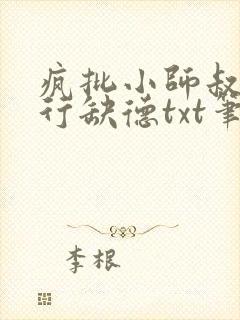 疯批小師叔
行缺德txt筆
李根